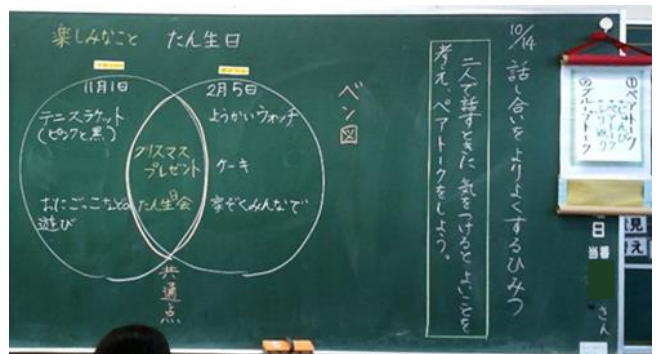 10/14 話し合いをよりよくするひみつ
二人で話すときに気をつけるとよいことを
考え、ペアトークをしよう。
ベン図
楽しみなこと たん生日
11月1日
テニスラケット
(ピンクと黒)
おにごっこなどの
遊び
クリスマス
プレゼント
たん生日会
2月5日
ようかいウォッチ
ケーキ
家ぞくみんなで
共通点
①ペアトーク
②グループトーク
日
当番
さん
意見